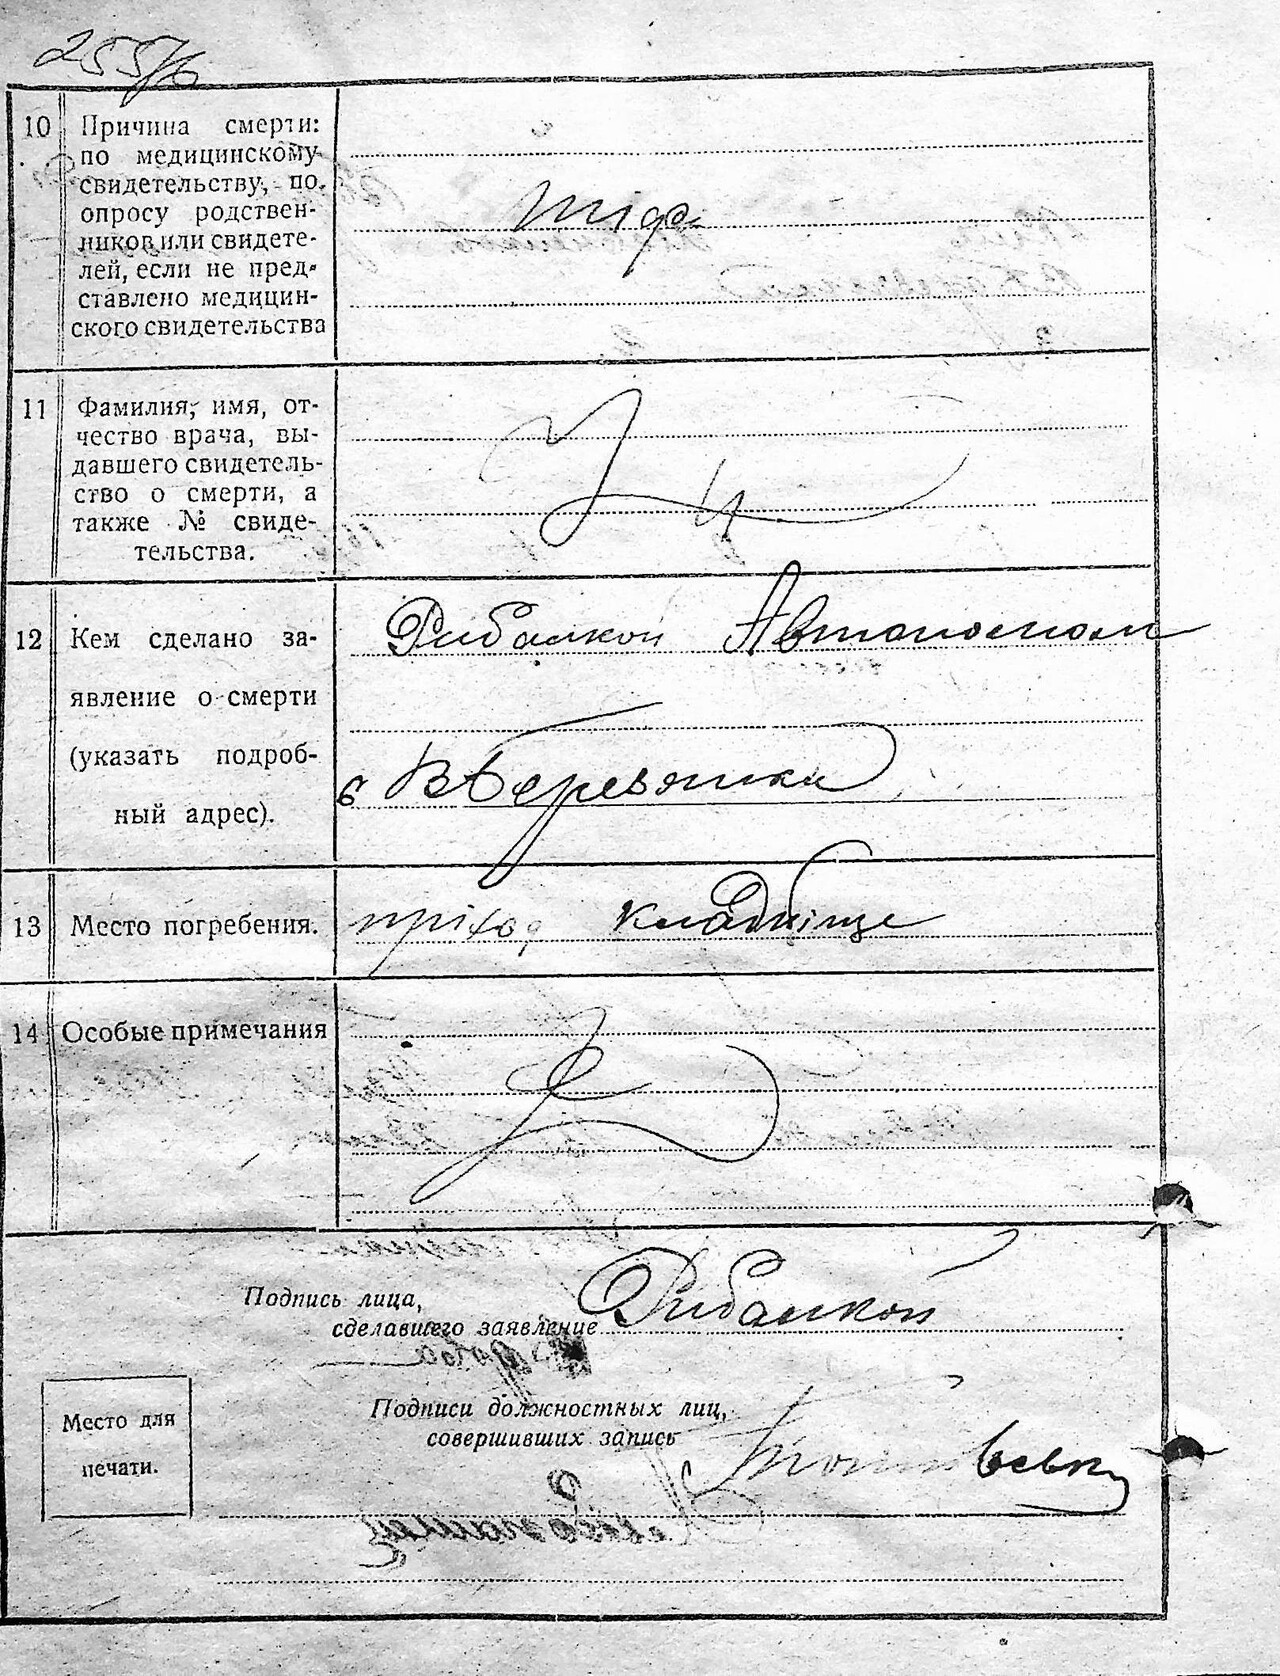 255/б
10 Причина смерти:
по медицинскому
свидетельству, по
опросу родствен-
ников или свидете-
лей, если не пред-
ставлено медицин-
ского свидетельства
тіф
11 Фамилия, имя, от-
чество врача, вы-
давшего свидетель-
ство о смерти, а
также № свиде-
тельства.
12 Кем сделано за-
явление о смерти
(указать подроб-
ный адрес).
Рибалкой Автономом
Березянка
13 Место погребения.
пріход кладбіще
14 Особые примечания
Подпись лица,
сделавшего заявление Рибалкой
Подписи должностных лиц,
совершивших запись
Место для
печати.